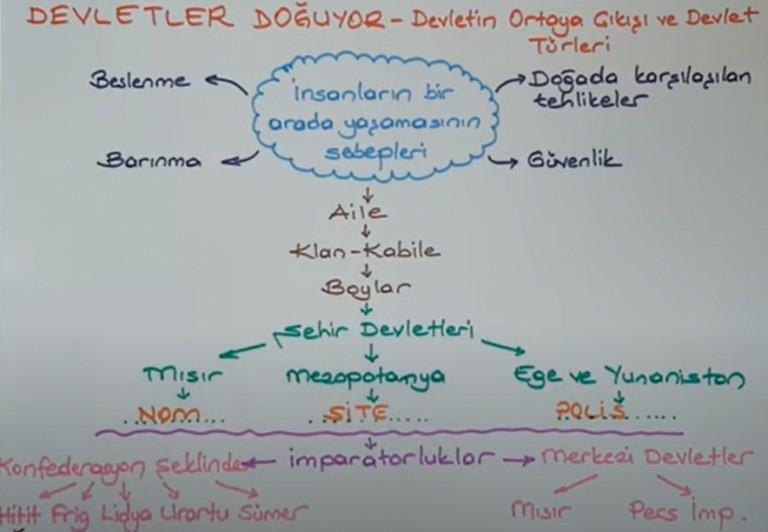 DEVLETLER DOĞUYOR - Devletin Ortaya Çıkışı ve Devlet
Türleri
Beslenme
Barınma
İnsanların bir
arada yaşamasının
sebepleri
Doğada karşılaşılan
tehlikeler
Güvenlik
Aile
Klan-Kabile
Boylar
Şehir Devletleri
Mısır
Mezopotamya
Ege ve Yunanistan
..NOM...
..SİTE.....
..POLİS......
Konfederasyon Şeklinde
imparatorluklar
Merkezi Devletler
Hitit Frig Lidya Urartu Sümer
Mısır
Pers İmp.